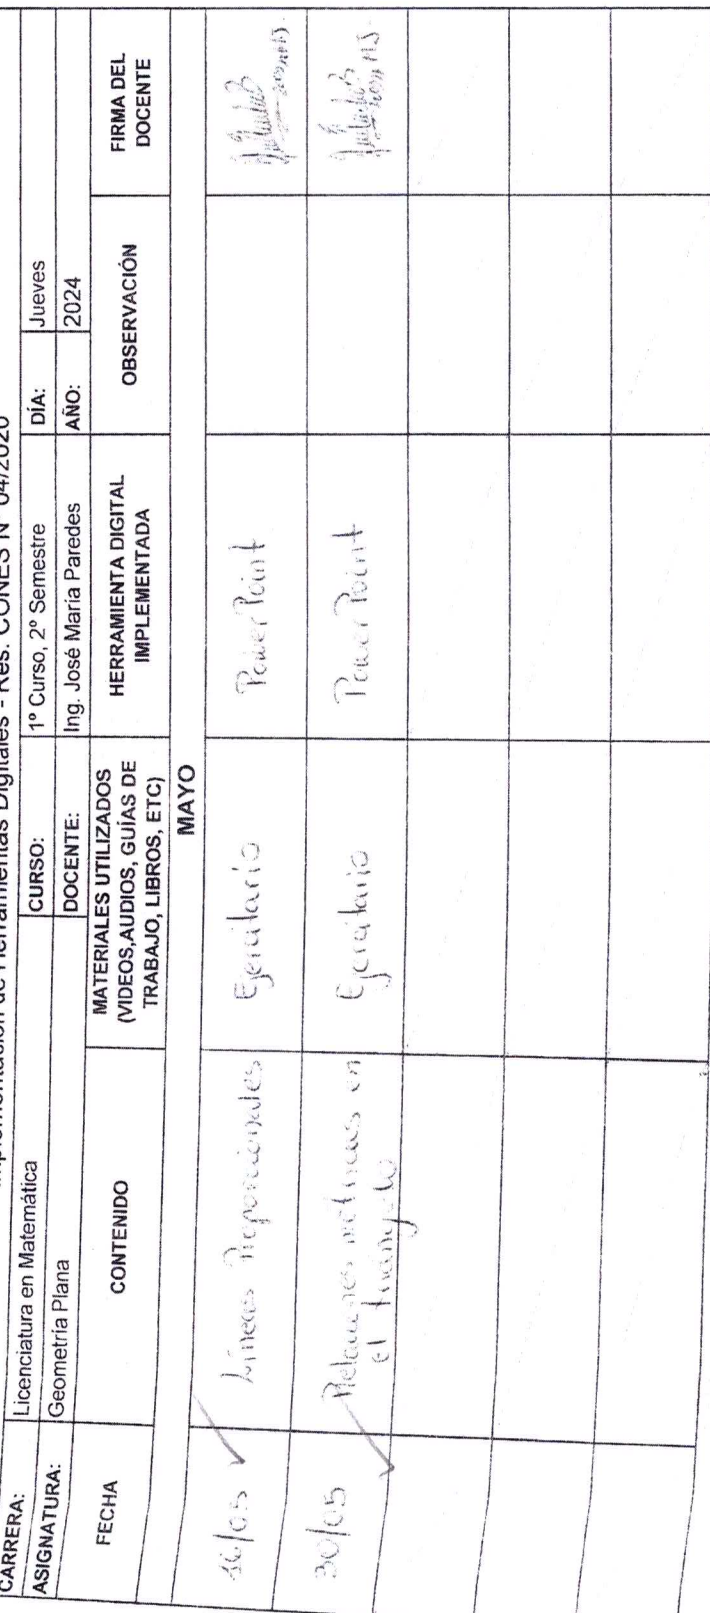 Implementación de Herramientas Digitales - Res. CONES N° 04/2020
CARRERA: Licenciatura en Matemática CURSO: 1º Curso, 2º Semestre DÍA: Jueves
ASIGNATURA: Geometría Plana DOCENTE: Ing. José María Paredes AÑO: 2024
FECHA
CONTENIDO
MATERIALES UTILIZADOS
(VIDEOS,AUDIOS, GUÍAS DE
TRABAJO, LIBROS, ETC)
HERRAMIENTA DIGITAL
IMPLEMENTADA
OBSERVACIÓN
FIRMA DEL
DOCENTE
MAYO
16/05 Líneas Proporcionales Ejercitario PowerPoint
30/05 Relaciones métricas en
el triángulo Ejercitario PowerPoint